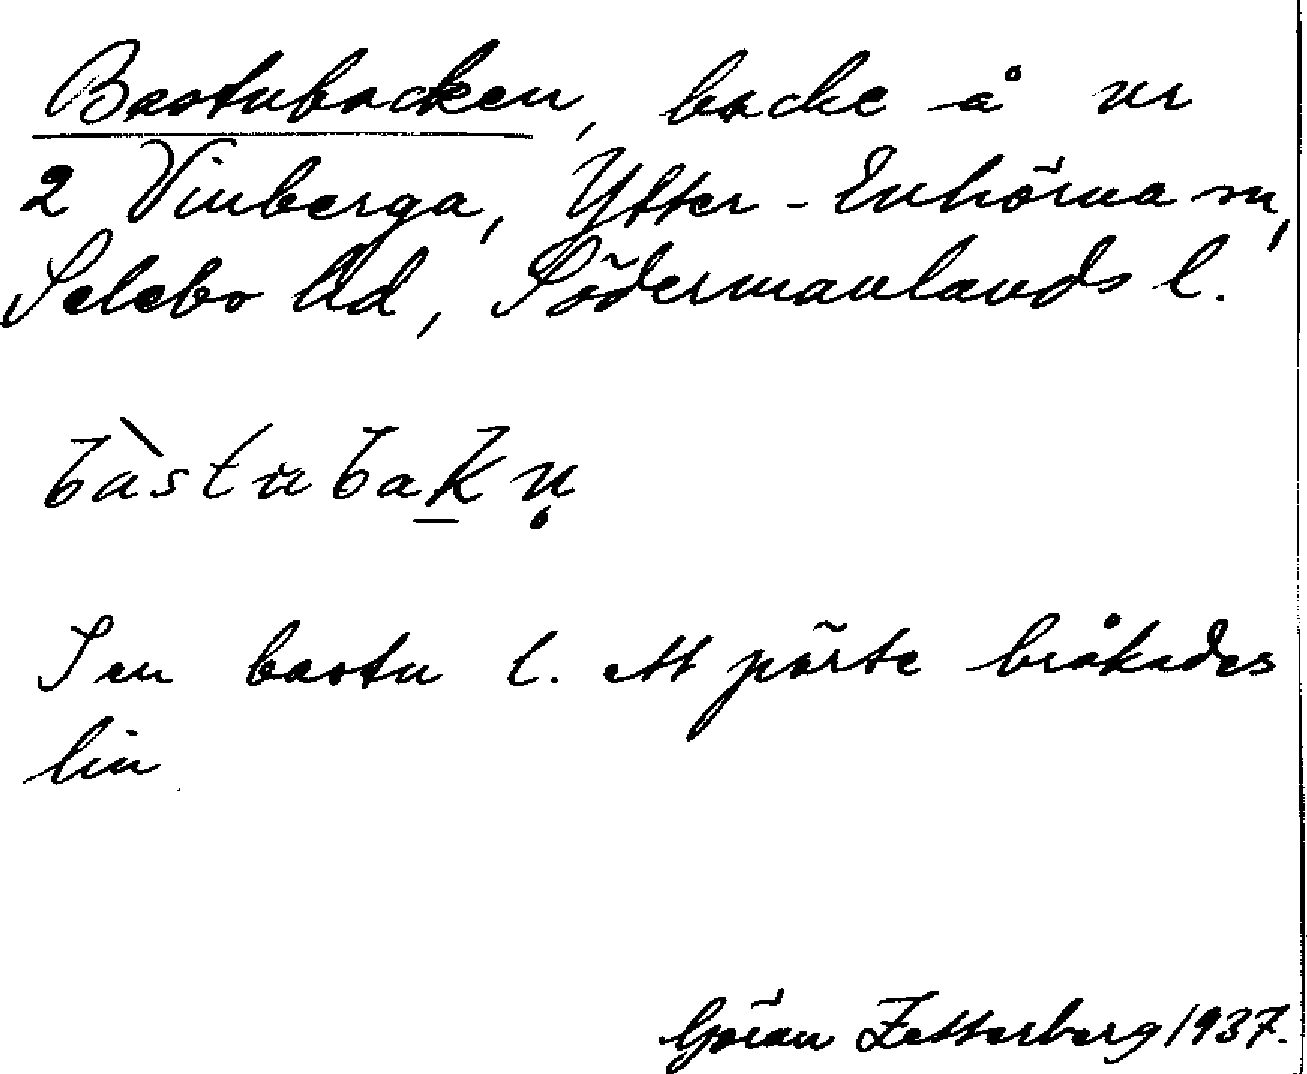 Bastubacken, backe å nr
2 Vinberga, Ytter-Enhörna sn,
Selebo hd, Södermanlands l.
bàstubakn̥
I en bastu l. ett pörte bråkades
lin
Göran Zetterberg 1937.